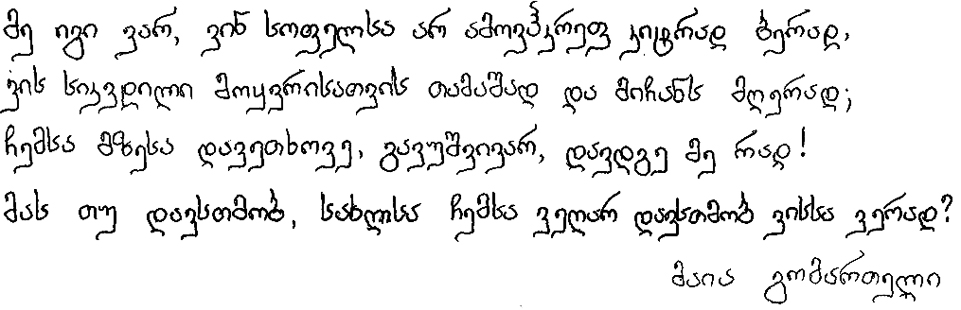 მე იგი ვარ, ვინ სოფელსა არ ამოვჰკრეფ კიტრად ბერად,
ვის სიკვდილი მოყვრისათვის თამაშად და მიჩანს მღერად;
ჩემსა მზესა დავეთხოვე, გავუშვივარ, დავდგე მე რად!
მას თუ დავსთმობ, სახლისა ჩემსა ველარ დავსთმობ ვისსა ვერად?
მაია გომართელი